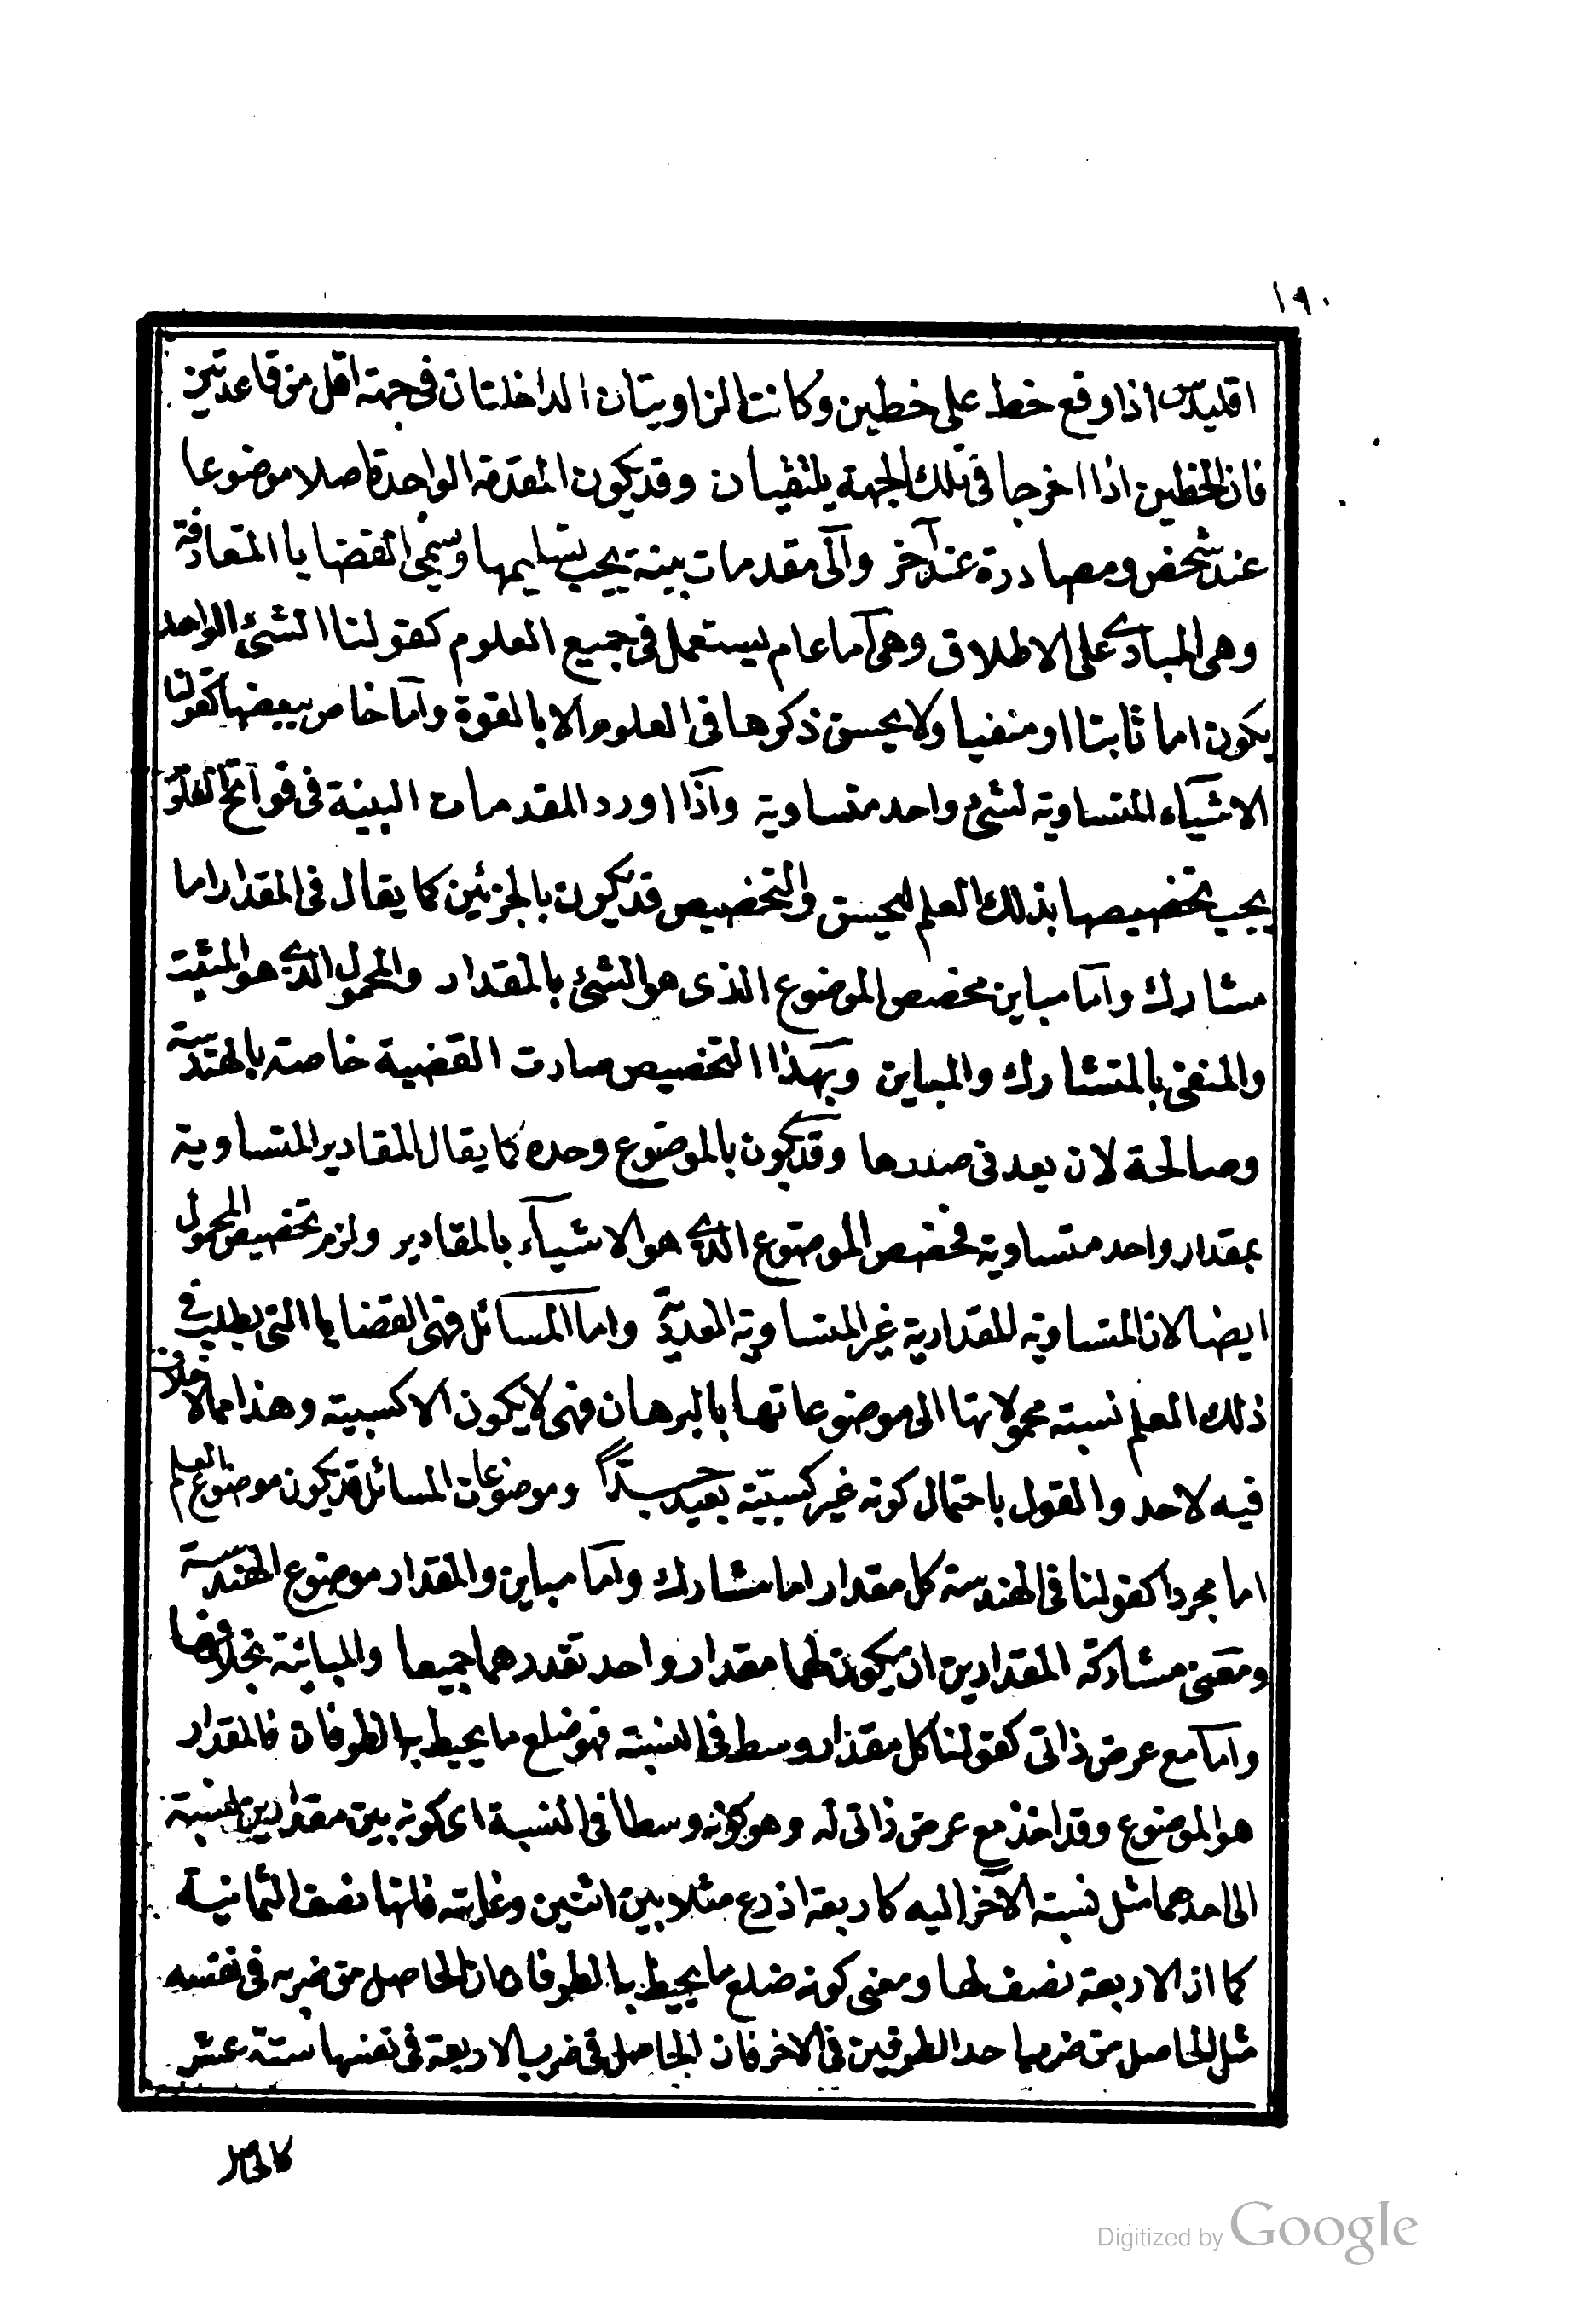 ١٩٠
اقليدس اذا وقع خط على خطين وكانت الزاويتان الداخلتان فى جهة اقل من قاعدتين
فان الخطين اذا اخرجا فى تلك الجهة يلتقيان وقد يكون المقدمة الواحدة اصلا موضوعا
عند شخص ومصادرة عند آخر والى مقدمات بينة يجب تسليمها وسمى القضايا المتعارفة
وهى المبادى على الاطلاق وهى اما عام يستعمل فى جميع العلوم كقولنا الشئ الواحد
يكون اما ثابتا او منفيا ولا يحسن ذكرها فى العلوم الا بالقوة واما خاص ببعضها كقولنا
الاشياء المتساوية لشئ واحد متساوية واذا اورد المقدمات البينة فى فواتح العلوم
يجب تخصيصها بذلك العلم ليحسن والتخصيص قد يكون بالجزئين كما يقال فى المقدار اما
مشارك واما مباين مخصص الموضوع الذى هو الشئ بالمقدار والمحمول الذى هو المثبت
والمنفى بالمتشارك والمباين وبهذا التخصيص صارت القضية خاصة بالهندسة
وصالحة لان يعد فى صدرها وقد يكون بالموضوع وحده كما يقال المقادير المتساوية
بمقدار واحد متساوية فخصص الموضوع الذى هو الاشياء بالمقادير ولزم تخصيص المحمول
ايضا لان المتساوية المقدارية غير المتساوية العددية واما المسائل فهى القضايا التى يطلب فى
ذلك العلم نسبة محمولاتها الى موضوعاتها بالبرهان فهى لا يكون الا كسبية وهذا مما لا خلاف
فيه لاحد والقول باحتمال كونه غير كسبية بعيد جدا وموضوعات المسائل قد يكون موضوع العلم
اما مجردا كقولنا فى الهندسة كل مقدار اما مشارك واما مباين والمقدار موضوع الهندسة
ومعنى مشاركة المقدارين ان يكون لهما مقدار واحد تقدرهما جميعا والمباينة بخلافها
واما مع عرض ذاتى كقولنا كل مقدار وسط فى النسبة فهو ضلع ما يحيط به الطرفان فالمقدار
هو الموضوع وقد اخذ مع عرض ذاتى له وهو كونه وسطا فى النسبة اى كونه بين مقدارين نسبته
الى احدهما مثل نسبة الآخر اليه كاربعة اذرع مثلا بين اثنين وثمانية فانها نصف الثمانية
كما ان الاربعة نصف لها ومعنى كونه ضلع ما يحيط به الطرفان ان الحاصل من ضربه فى نفسه
مثل الحاصل من ضرب احد الطرفين فى الاخر فان الحاصل فى ضرب الاربعة فى نفسها ستة عشر
كالحاصل
Digitized by Google